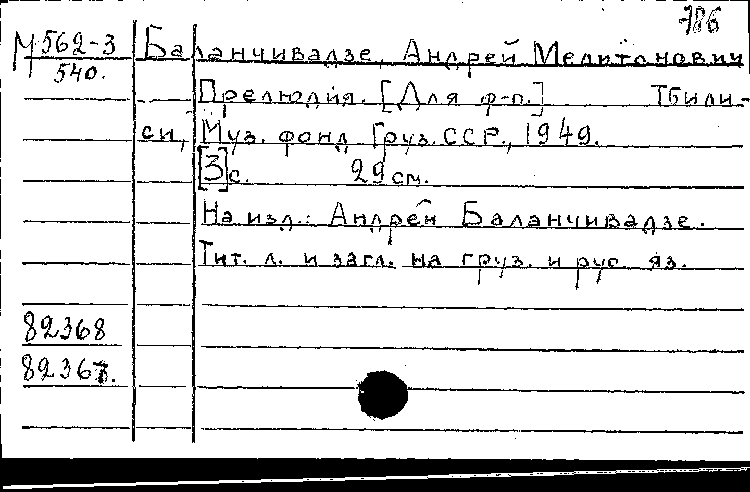 786
М 562-3 Баланчивадзе, Андрей Мелитонович
540.
Прелюдия. [Для ф-п.] Тбили-
си, Муз. фонд Груз. ССР, 1949.
[3]с. 29 см.
На изд.: Андрей Баланчивадзе.
Тит. л. и загл. на груз. и рус. яз.
82368
82367.